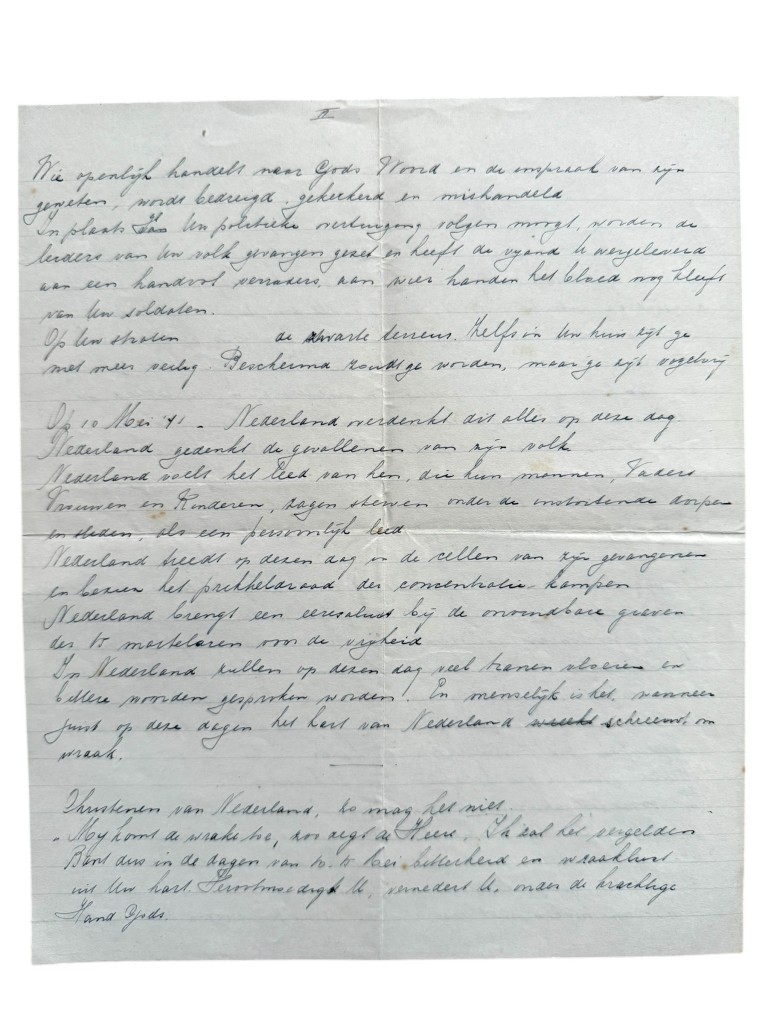 II
Wie openlijk handelt naar Gods Woord en de inspraak van zijn
geweten, wordt bedreigd, gekerkerd en mishandeld
In plaats dat ge Uw politieke overtuiging volgen moogt, worden de
leiders van Uw volk gevangen gezet en heeft de vijand U overgeleverd
aan een handvol verraders, aan wier handen het bloed nog kleeft
van Uw soldaten.
Op Uw straten de zwarte terreur. Zelfs in Uw huis zijt ge
niet meer veilig. Beschermd zoudt ge worden, maar ge zijt vogelvrij
Op 10 Mei '41 - Nederland overdenkt dit alles op deze dag
Nederland gedenkt de gevallenen van zijn volk
Nederland voelt het leed van hen, die hun mannen, Vaders
Vrouwen en Kinderen, zagen sterven onder de instortende dorpen
en steden, als een persoonlijk leed
Nederland treedt op dezen dag in de cellen van zijn gevangenen
en het prikkeldraad der concentratie-kampen
Nederland brengt een eeresaluut bij de onvindbare graven
der 18 martelaren voor de vrijheid
In Nederland zullen op dezen dag veel tranen vloeien en
bittere woorden gesproken worden! En menselijk is het, wanneer
juist op deze dagen het hart van Nederland schreeuwt om
wraak.
Christenen van Nederland, zo mag het niet.
- Mij komt de wrake toe, zoo zegt de Heere, Ik zal het vergelden
Bant dus in de dagen van bitterheid en wraaklust
uit Uw hart. Verootmoedigt U, vernedert U, onder de krachtige
Hand Gods.